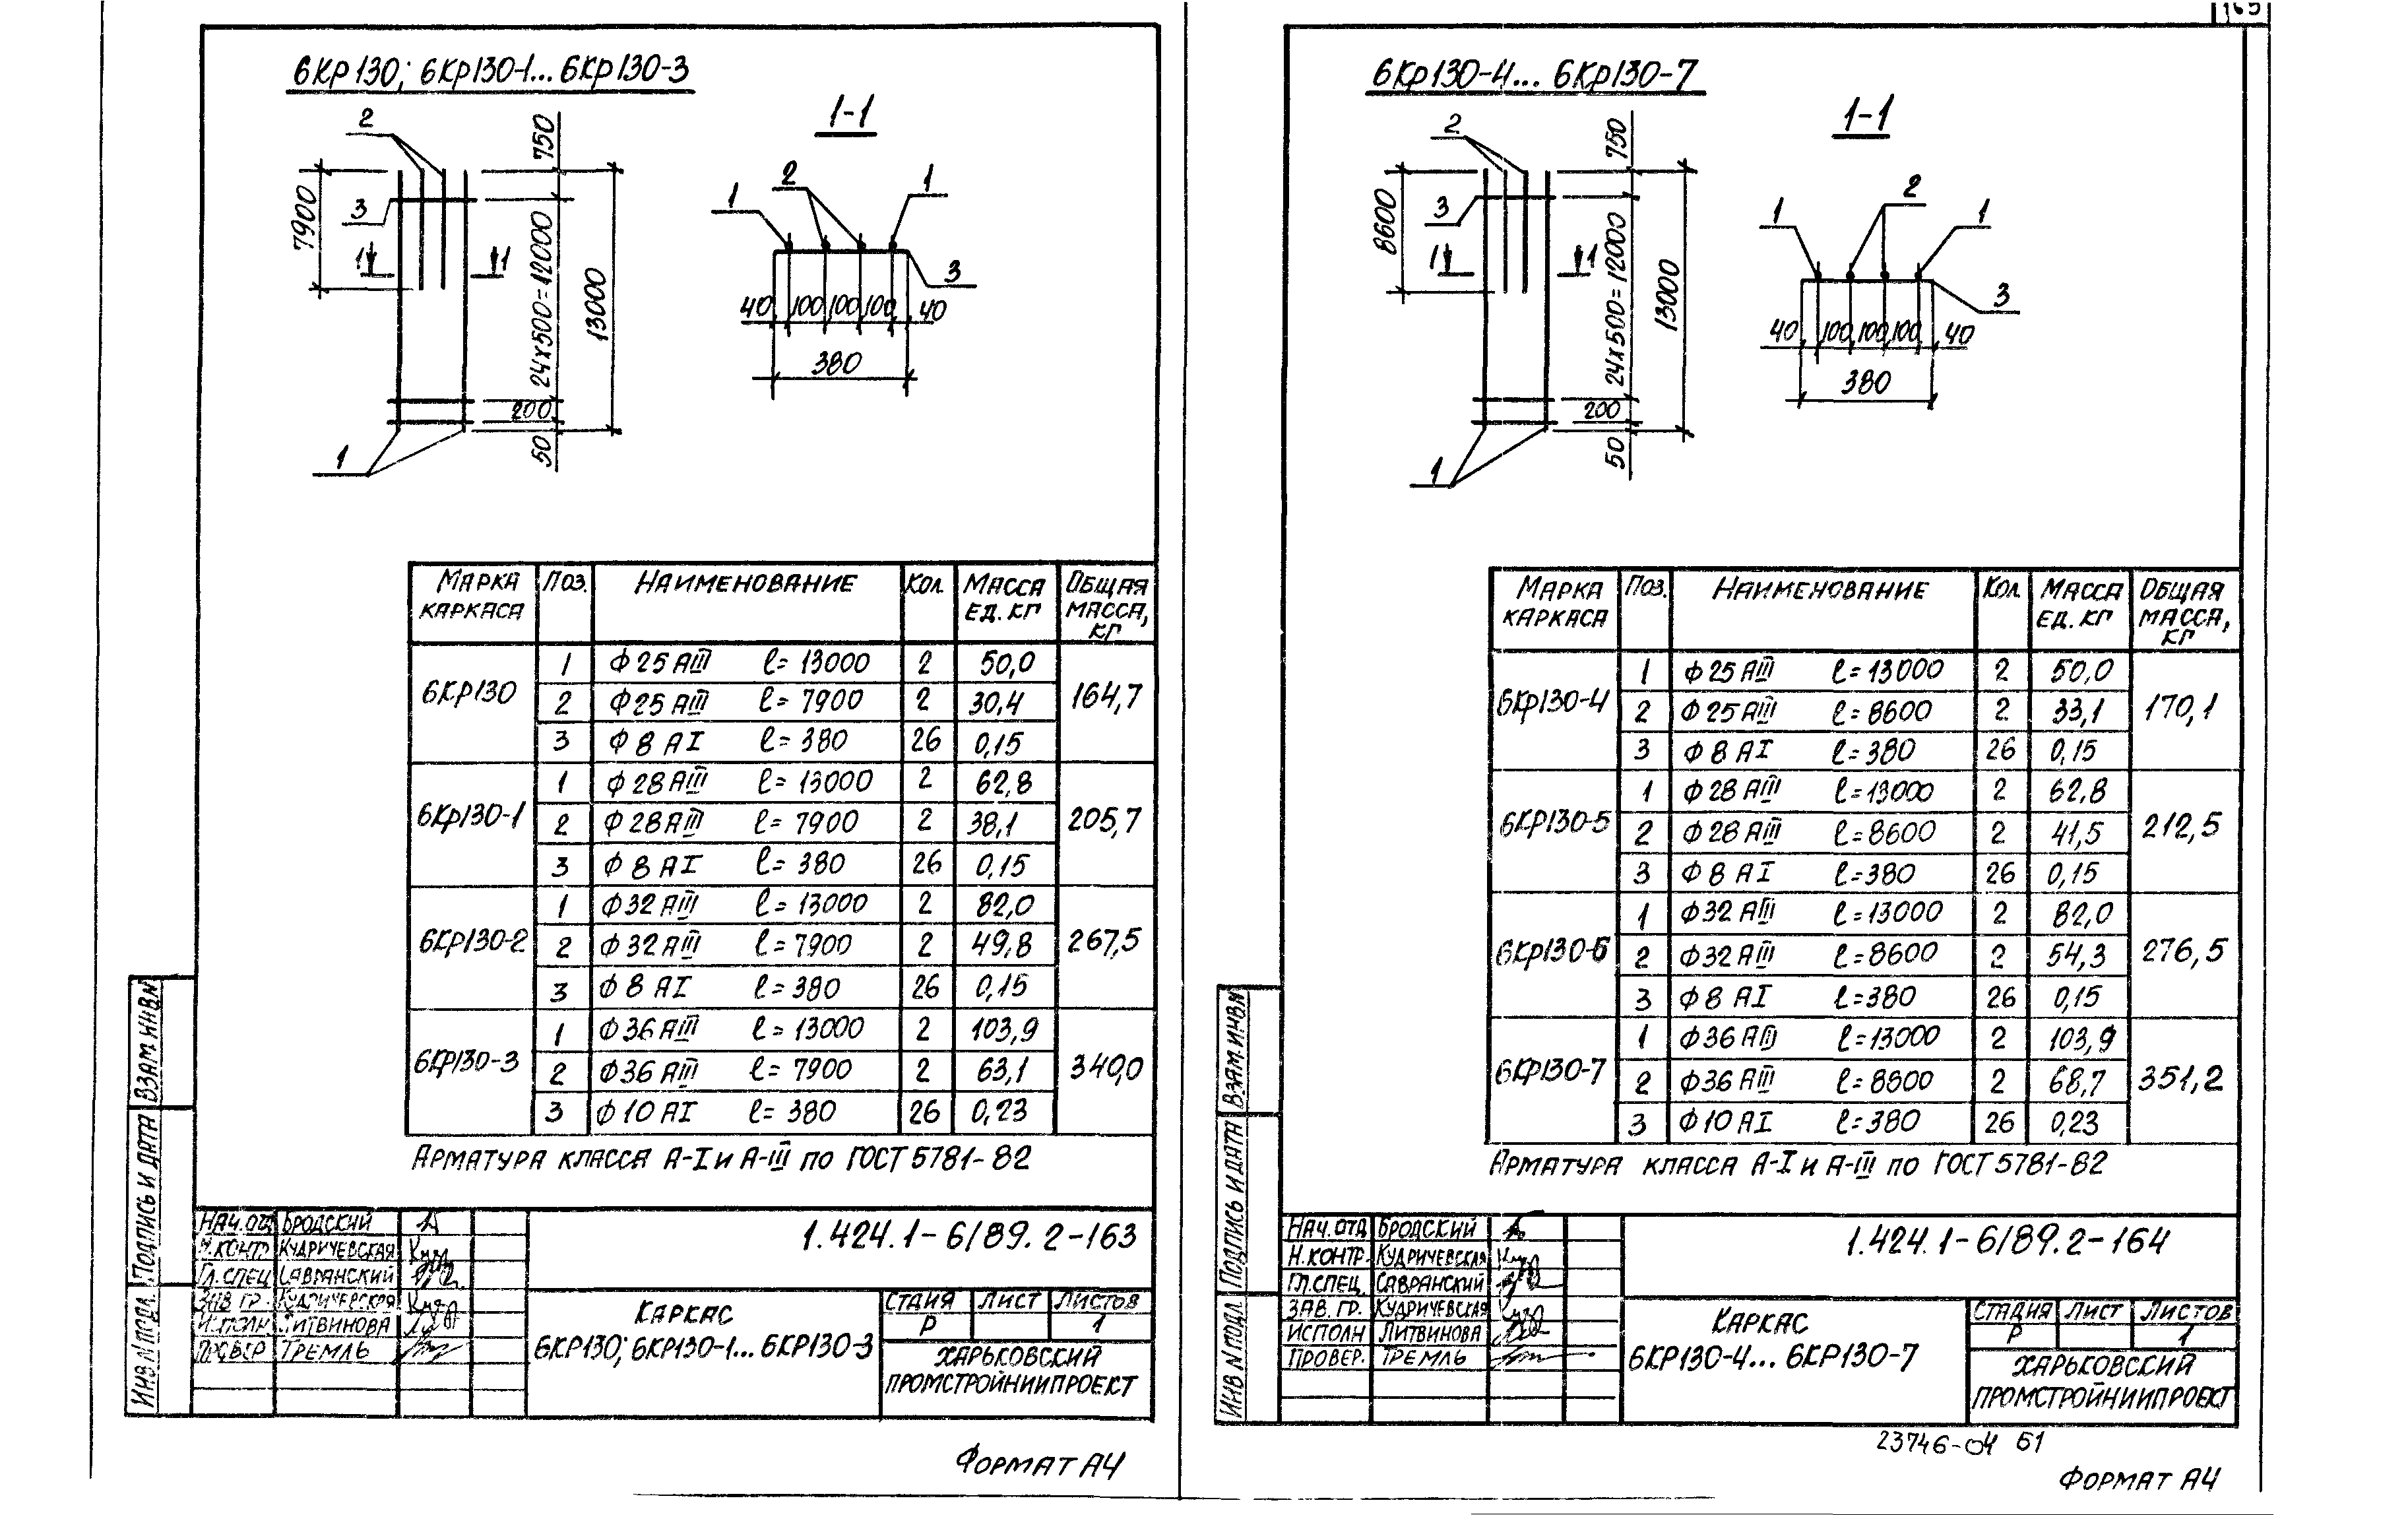 6КР130; 6КР130-1... 6КР130-3
1-1
2
3
1 1
1
7900
750
24х500=12000
200
50
13000
1 2 1
3
40 100 100 100 40
380
МАРКА КАРКАСА ПОЗ. НАИМЕНОВАНИЕ КОЛ. МАССА ЕД. КГ ОБЩАЯ МАССА, КГ
6КР130 1 Ф25 АIII ℓ= 13000 2 50,0 164,7
2 Ф25 АIII ℓ= 7900 2 30,4
3 Ф8 АI ℓ= 380 26 0,15
6КР130-1 1 Ф28 АIII ℓ= 13000 2 62,8 205,7
2 Ф28 АIII ℓ= 7900 2 38,1
3 Ф8 АI ℓ= 380 26 0,15
6КР130-2 1 Ф32 АIII ℓ= 13000 2 82,0 267,5
2 Ф32 АIII ℓ= 7900 2 49,8
3 Ф8 АI ℓ= 380 26 0,15
6КР130-3 1 Ф36 АIII ℓ= 13000 2 103,9 340,0
2 Ф36 АIII ℓ= 7900 2 63,1
3 Ф10 АI ℓ= 380 26 0,23
АРМАТУРА КЛАССА А-I и А-III ПО ГОСТ 5781-82
ВЗАМ. ИНВ.N
ПОДПИСЬ И ДАТА
ИНВ N ПОДЛ.
НАЧ. ОТД БРОДСКИЙ
Н.КОНТР КУДРИЧЕВСКАЯ
ГЛ.СПЕЦ САВРАНСКИЙ
ЗАВ ГР. КУДРИЧЕВСКАЯ
ИСПОЛН ЛИТВИНОВА
ПРОВЕР ТРЕМЛЬ
1.424.1-6/89.2-163
КАРКАС
6КР130; 6КР130-1... 6КР130-3
СТАДИЯ ЛИСТ ЛИСТОВ
Р 1
ХАРЬКОВСКИЙ
ПРОМСТРОЙНИИПРОЕКТ
ФОРМАТ А4
165
6КР130-4... 6КР130-7
1-1
2
3
1 1
1
8600
750
24х500=12000
200
50
13000
1 2 1
3
40 100 100 100 40
380
МАРКА КАРКАСА ПОЗ. НАИМЕНОВАНИЕ КОЛ МАССА ЕД. КГ ОБЩАЯ МАССА, КГ
6КР130-4 1 Ф25 АIII ℓ=13000 2 50,0 170,1
2 Ф25 АIII ℓ=8600 2 33,1
3 Ф8 АI ℓ=380 26 0,15
6КР130-5 1 Ф28 АIII ℓ=13000 2 62,8 212,5
2 Ф28 АIII ℓ=8600 2 41,5
3 Ф8 АI ℓ=380 26 0,15
6КР130-6 1 Ф32 АIII ℓ=13000 2 82,0 276,5
2 Ф32 АIII ℓ=8600 2 54,3
3 Ф8 АI ℓ=380 26 0,15
6КР130-7 1 Ф36 АIII ℓ=13000 2 103,9 351,2
2 Ф36 АIII ℓ=8600 2 68,7
3 Ф10 АI ℓ=380 26 0,23
АРМАТУРА КЛАССА А-I и А-III ПО ГОСТ 5781-82
ВЗАМ. ИНВ.N
ПОДПИСЬ И ДАТА
ИНВ N ПОДЛ
НАЧ. ОТД БРОДСКИЙ
Н.КОНТР. КУДРИЧЕВСКАЯ
ГЛ.СПЕЦ. САВРАНСКИЙ
ЗАВ. ГР. КУДРИЧЕВСКАЯ
ИСПОЛН ЛИТВИНОВА
ПРОВЕР. ТРЕМЛЬ
1.424.1-6/89.2-164
КАРКАС
6КР130-4... 6КР130-7
СТАДИЯ ЛИСТ ЛИСТОВ
Р 1
ХАРЬКОВСКИЙ
ПРОМСТРОЙНИИПРОЕКТ
23746-04 61
ФОРМАТ А4